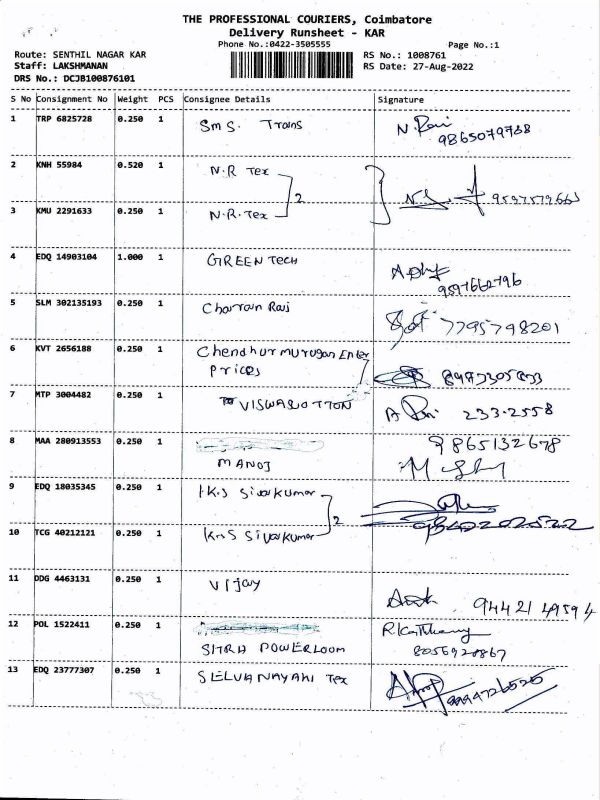 THE PROFESSIONAL COURIERS, Coimbatore
Delivery Runsheet - KAR
Phone No.:0422-3505555
Page No.:1
Route: SENTHIL NAGAR KAR
RS No.: 1008761
Staff: LAKSHMANAN
RS Date: 27-Aug-2022
DRS No.: DCJB100876101
S No Consignment No Weight PCS Consignee Details Signature
1 TRP 6825728 0.250 1 Sms. Trans N. Ravi
9865079768
2 KNH 55984 0.520 1 N.R Tex
2
3 KMU 2291633 0.250 1 N.R.Tex
4 EDQ 14903104 1.000 1 GREEN TECH
9597662796
5 SLM 302135193 0.250 1 Charran Raj 7795798201
6 KVT 2656188 0.250 1 Chendhur murugan Enter
prices
7 MTP 3004482 0.250 1 VISWA COTTON A 233.2558
8 MAA 280913553 0.250 1 9865132678
MANOJ
9 EDQ 18035345 0.250 1 K.S Sivakumar
2
10 TCG 40212121 0.250 1 K.S Sivakumar
11 DDG 4463131 0.250 1 Vijay
9442149594
12 POL 1522411 0.250 1
SITRA POWERLOOM 8056920867
13 EDQ 23777307 0.250 1 SELVANAYAKI Tex